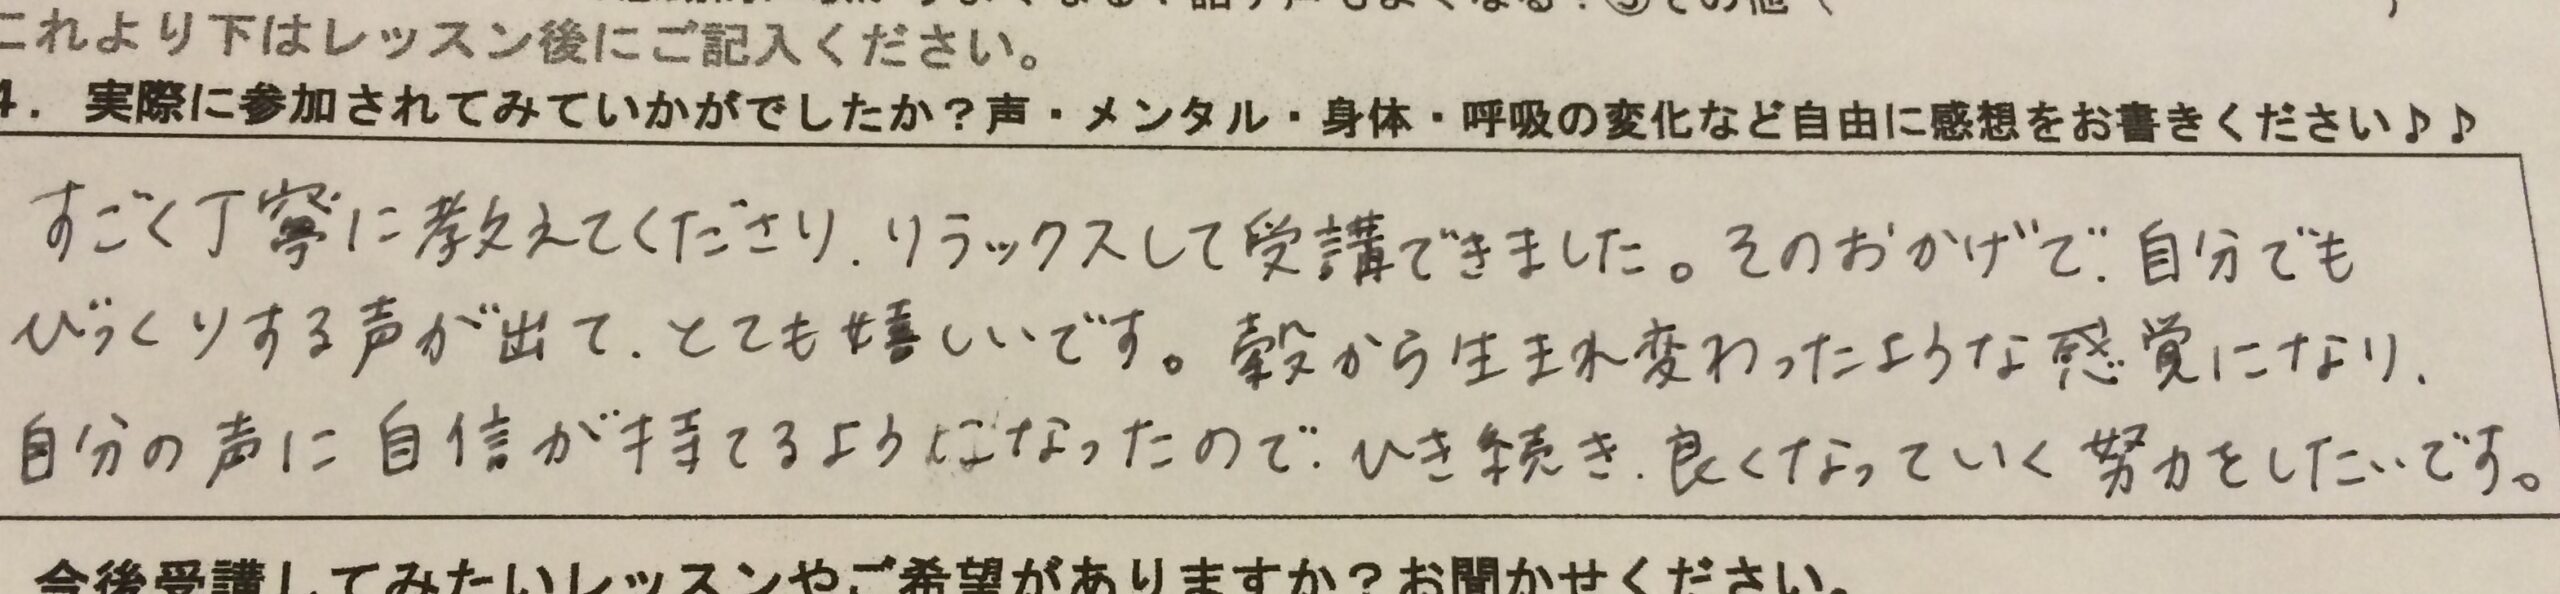 これより下はレッスン後にご記入ください。
4．実際に参加されてみていかがでしたか？声・メンタル・身体・呼吸の変化など自由に感想をお書きください♪♪
すごく丁寧に教えてくださり、リラックスして受講できました。そのおかげで、自分でも
びっくりする声が出て、とても嬉しいです。殻から生まれ変わったような感覚になり、
自分の声に自信が持てるようになったので、ひき続き、良くなっていく努力をしたいです。
今後受講してみたいレッスンやご希望がありますか？お聞かせください。